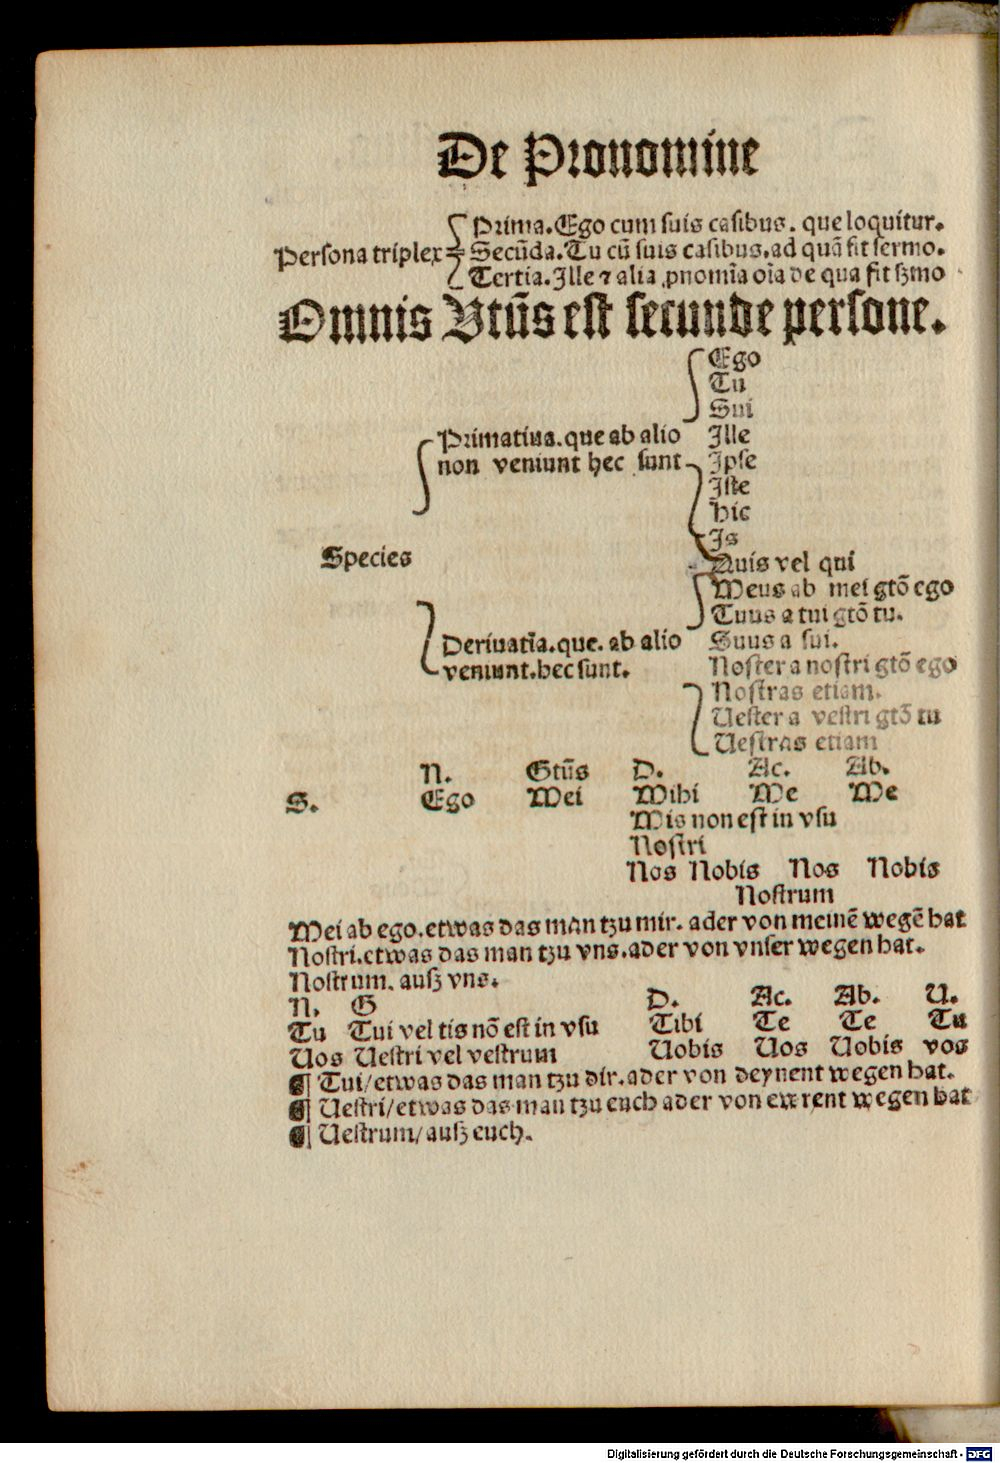 De Pronomine
Prima. Ego cum suis casibus. que loquitur.
Persona triplex Secūda. Tu cū suis casibus. ad quā fit sermo.
Tertia. Ille ⁊ alia ꝓnomīa oīa de qua fit sꝫmo
Omnis Vtūs est secunde persone.
Ego
Tu
Sui
Primatiua. que ab alio Ille
non veniunt hec sunt Ipse
Iste
Hic
Is
Species
Quis vel qui
Meus ab mei gtō ego
Tuus a tui gtō tu.
Deriuatīa. que. ab alio Suus a sui.
veniunt. hec sunt. Noster a nostri gtō ego
Nostras etiam.
Uester a vestri gtō tu
Uestras etiam
N. Gtūs D. Ac. Ab.
S. Ego Mei Mihi Me Me
Mis non est in vsu
Nostri
Nos Nobis Nos Nobis
Nostrum
Mei ab ego. etwas das man tzu mir. ader von meinē wegē hat
Nostri. etwas das man tzu vns. ader von vnser wegen hat.
Nostrum. ausz vns.
N. G D. Ac. Ab. U.
Tu Tui vel tis nō est in vsu Tibi Te Te Tu
Uos Uestri vel vestrum Uobis Uos Uobis vos
¶ Tui/ etwas das man tzu dir. ader von deynent wegen hat.
¶ Uestri/ etwas das man tzu euch ader von ewrent wegen hat
¶ Uestrum/ ausz euch.
Digitalisierung gefördert durch die Deutsche Forschungsgemeinschaft - DFG